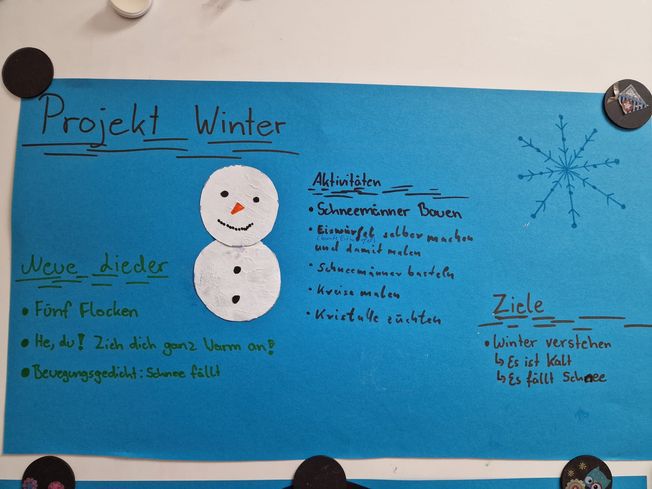 Projekt Winter
Neue Lieder
• Fünf Flocken
• He, du! Zieh dich ganz Warm an!
• Bewegungsgedicht: Schnee fällt
Aktivitäten
• Schneemänner Bauen
• Eiswürfel selber machen
und damit malen
• Schneemänner basteln
• Kreise malen
• Kristalle züchten
Ziele
• Winter verstehen
↳ Es ist Kalt
↳ Es fällt Schnee